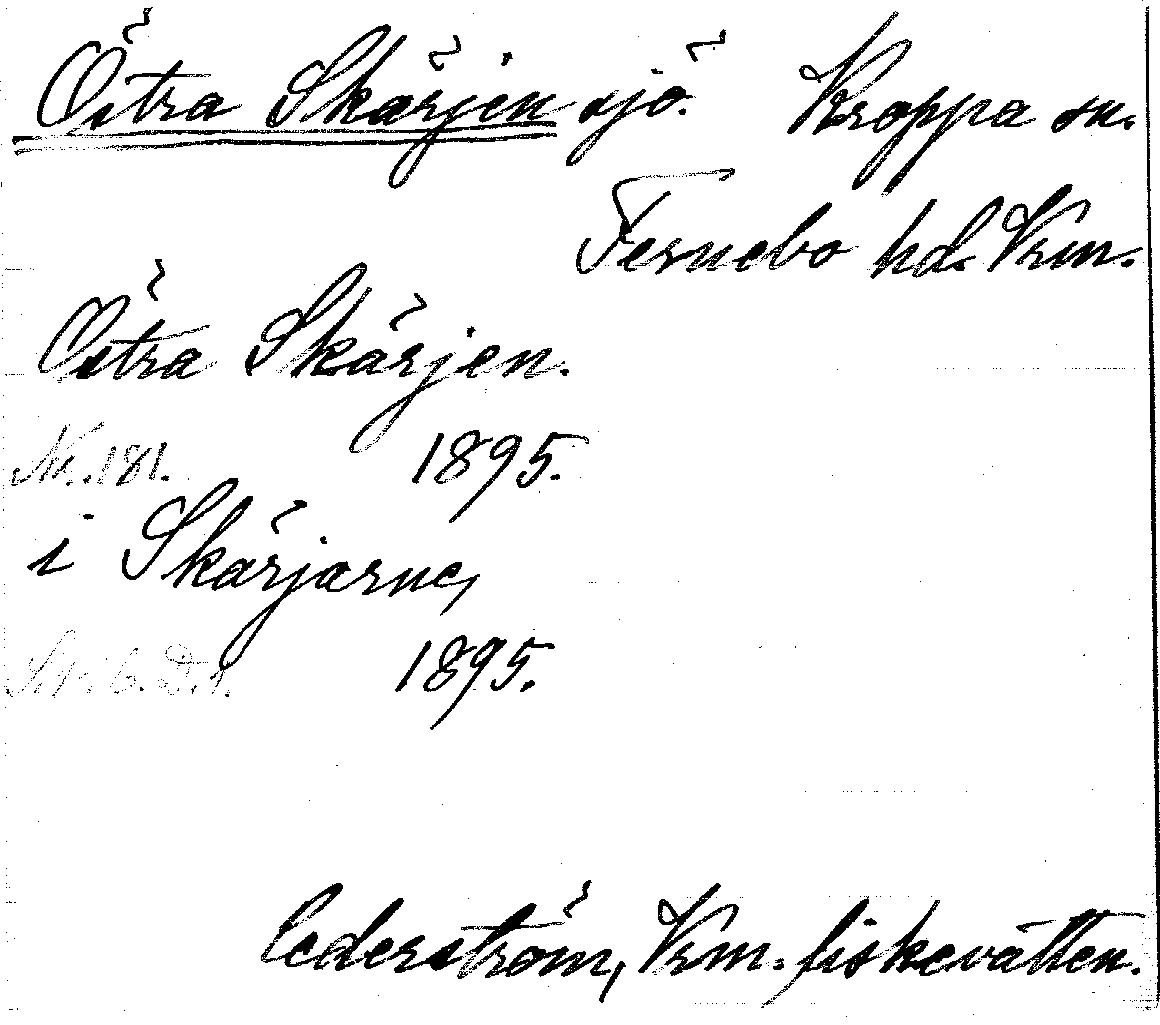 Östra Skärjen sjö. Kroppa sn.
Fernebo hd. Vrm.
Östra Skärjen.
Nr. 181. 1895.
i Skärjarne,
1895.
Cederström, Vrm. fiskevatten.